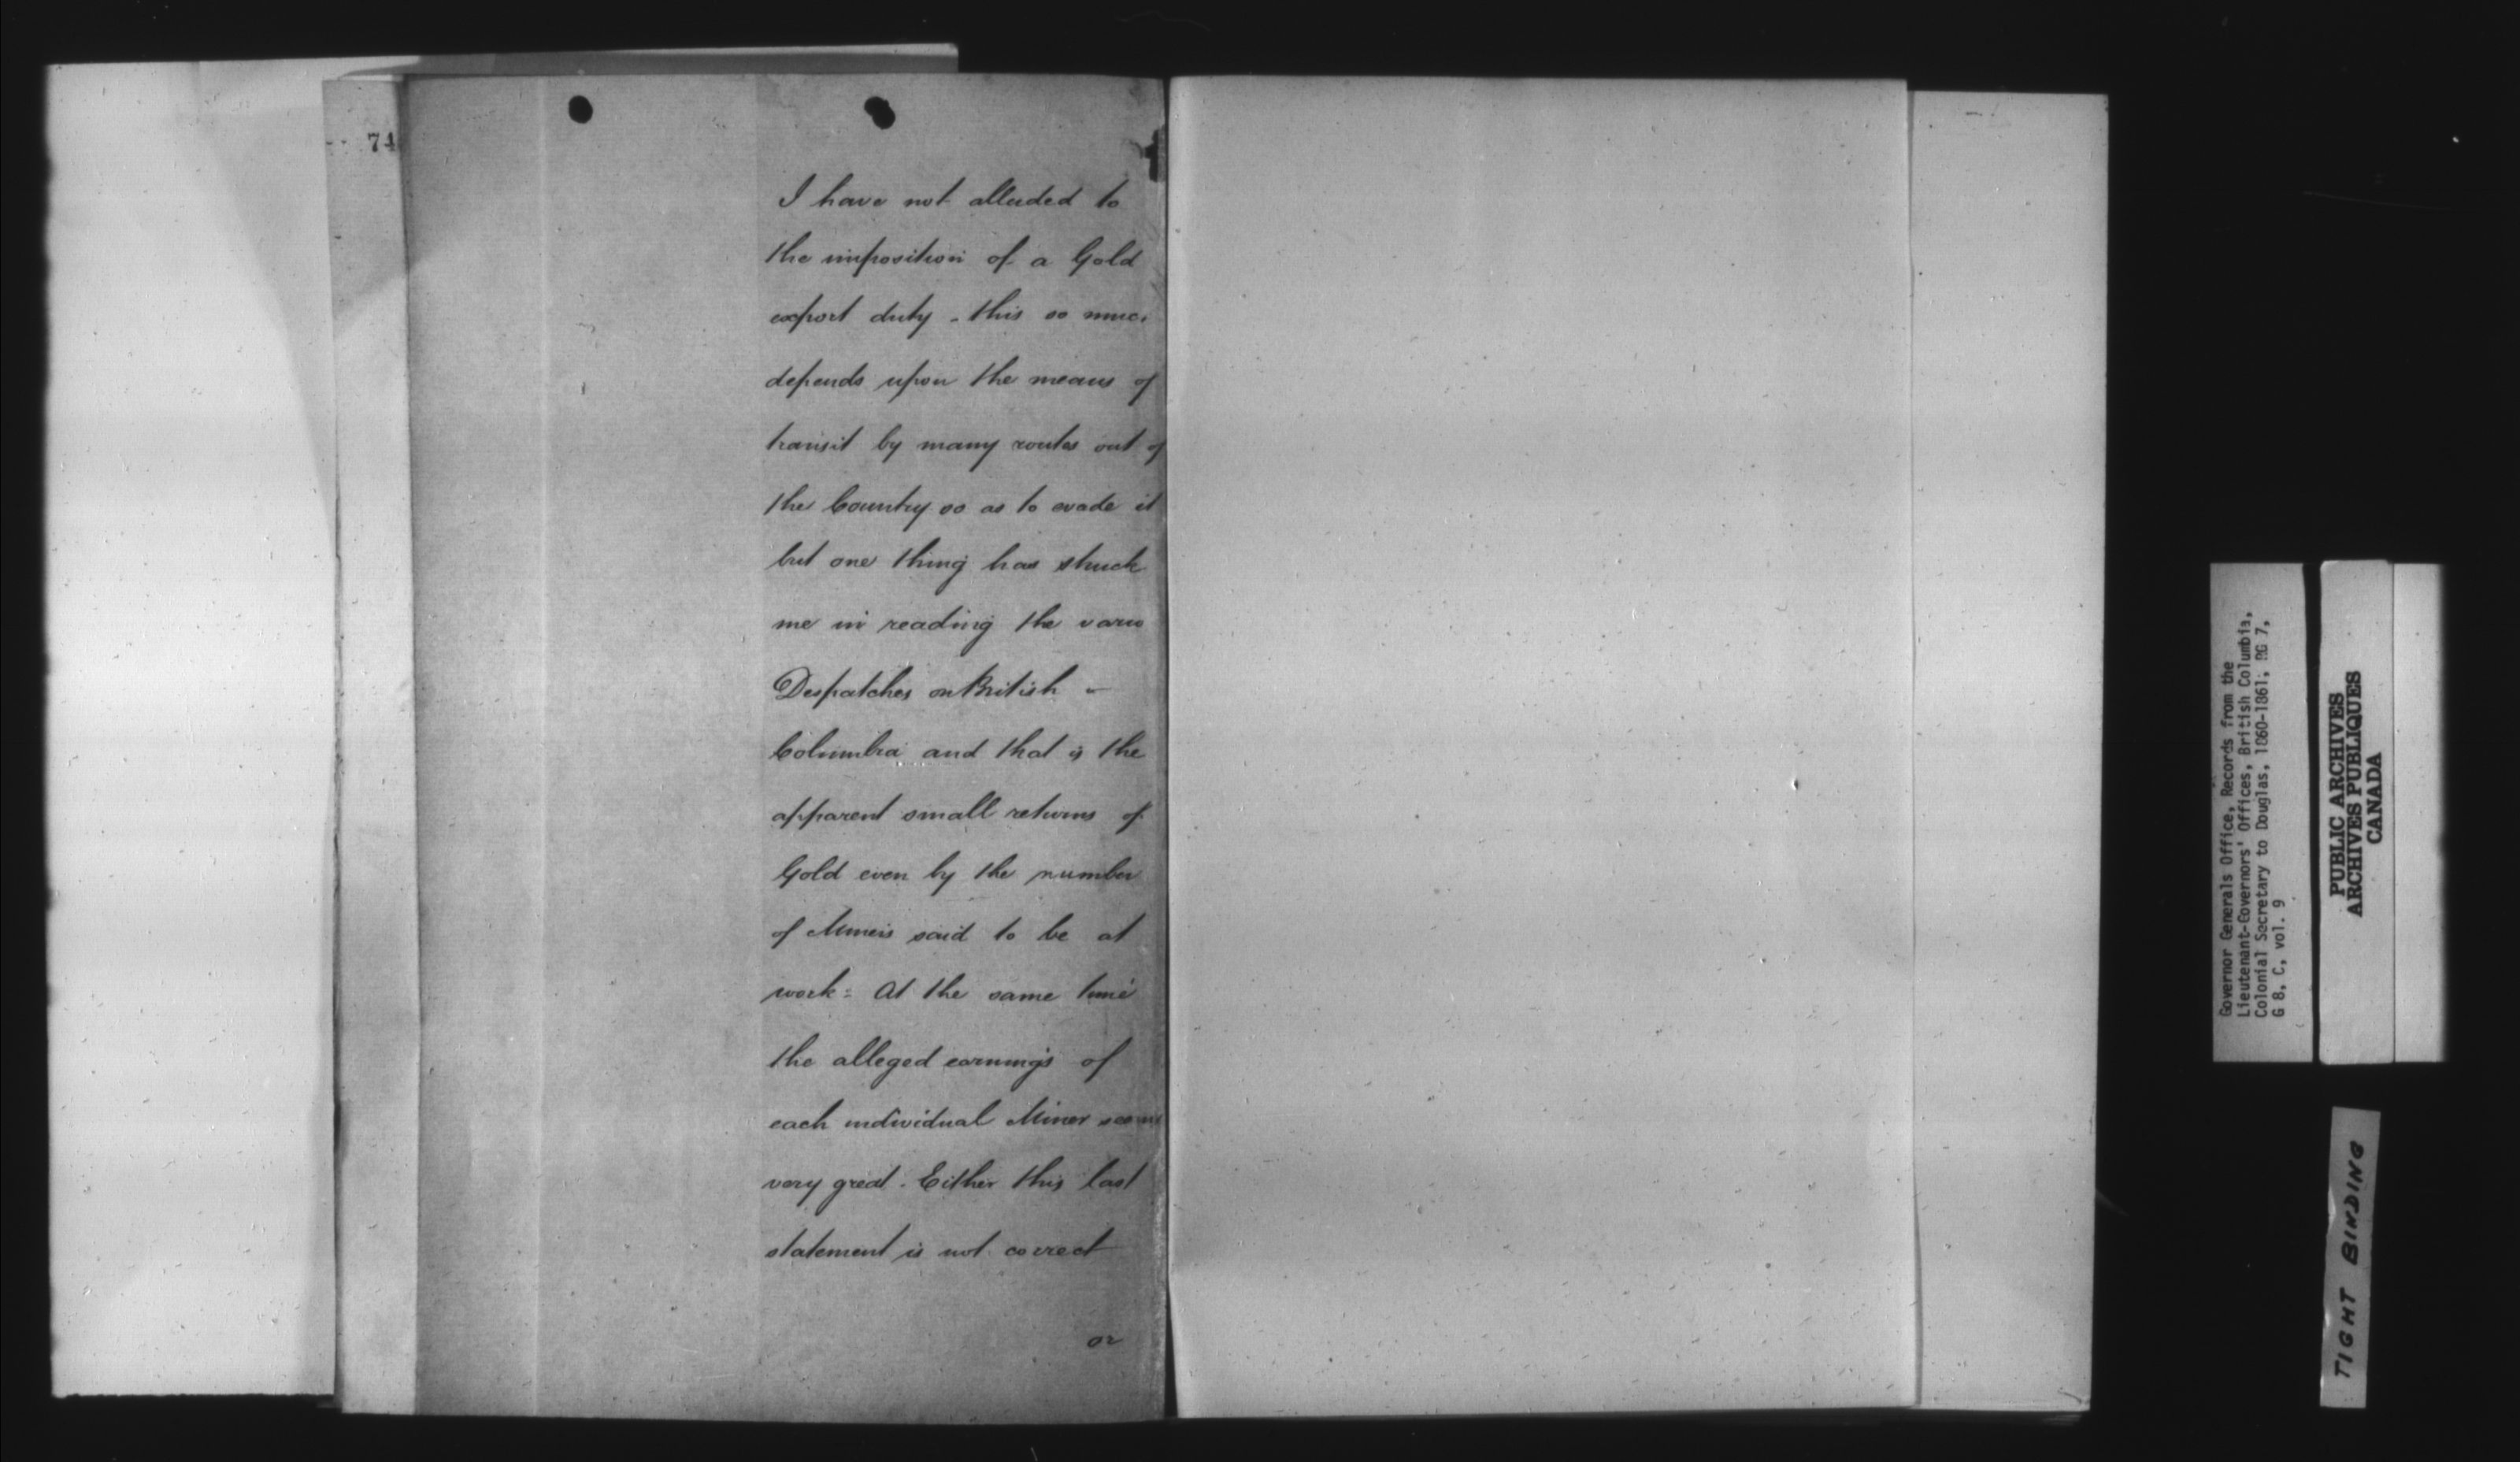 74
I have not alluded to
the imposition of a Gold
export duty - this so muc
depends upon the means of
transit by many routes out of
the Country so as to evade it
but one thing has struck
me in reading the vario
Despatches on British -
Columbia and that is the
apparent small returns of
Gold even by the number
of Miners said to be at
work = At the same time
the alleged earnings of
each individual Miner seems
very great. Either this last
statement is not correct
or
Governor Generals Office, Records from the
Lieutenant-Governors' Offices, British Columbia,
Colonial Secretary to Douglas, 1860-1861; RG 7,
G 8, C, vol. 9
PUBLIC ARCHIVES
ARCHIVES PUBLIQUES
CANADA
TIGHT BINDING